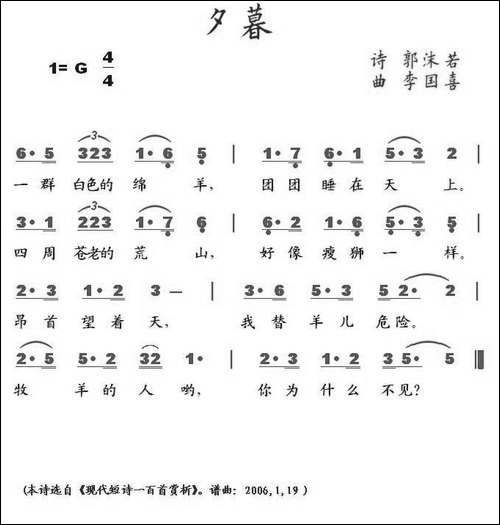 夕暮
1= G 4/4
诗 郭沫若
曲 李国喜
6· 5 323 1· 6 5 | 1· 7 6· 1 5· 3 2 |
一群白色的绵羊, 团团睡在天上。
3· 1 223 1· 7 6 | 6· 2 1· 6 5· 3 5 |
四周苍老的荒山, 好像瘦狮一样。
2· 3 1· 2 3 — | 3· 6 5· 3 5 2· 2 |
昂首望着天, 我替羊儿危险。
2· 5 5· 2 32 1· | 2· 3 1· 2 3 5· 5
牧羊的人哟, 你为什么不见?
(本诗选自《现代短诗一百首赏析》。谱曲: 2006,1,19 )